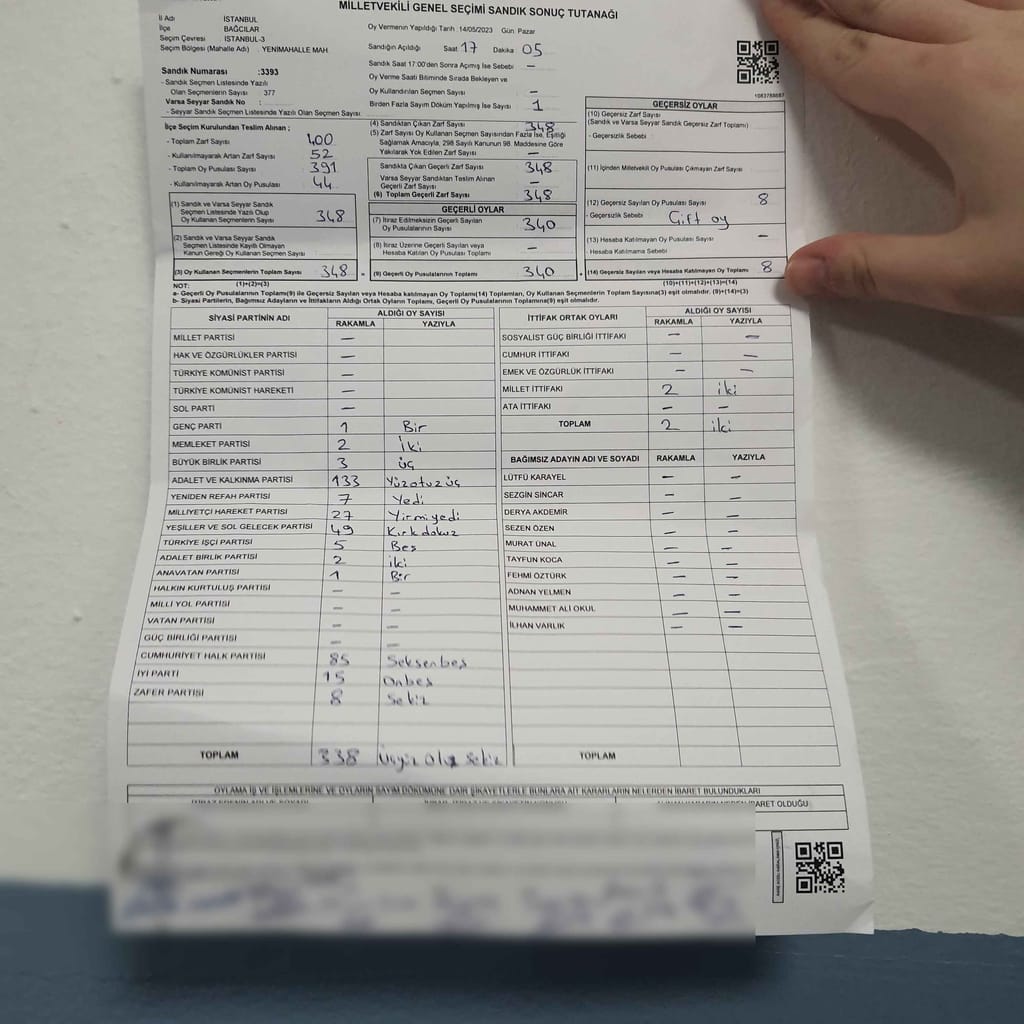 MİLLETVEKİLİ GENEL SEÇİMİ SANDIK SONUÇ TUTANAĞI
İl Adı İSTANBUL
İlçe BAĞCILAR
Seçim Çevresi İSTANBUL-3
Seçim Bölgesi (Mahalle Adı) : YENİMAHALLE MAH
Oy Vermenin Yapıldığı Tarih : 14/05/2023 Gün: Pazar
Sandığın Açıldığı Saat 17 Dakika 05
Sandık Saat 17:00'den Sonra Açımış İse Sebebi —
Oy Verme Saati Bitiminde Sırada Bekleyen ve
Oy Kullandırılan Seçmen Sayısı —
Birden Fazla Sayım Döküm Yapılmış İse Sayısı 1
Sandık Numarası :3393
- Sandık Seçmen Listesinde Yazılı
Olan Seçmenlerin Sayısı : 377
Varsa Seyyar Sandık No :
- Seyyar Sandık Seçmen Listesinde Yazılı Olan Seçmen Sayısı
1083788687
İlçe Seçim Kurulundan Teslim Alınan ;
- Toplam Zarf Sayısı 400
- Kullanılmayarak Artan Zarf Sayısı 52
- Toplam Oy Pusulası Sayısı 391
- Kullanılmayarak Artan Oy Pusulası 44
(1) Sandık ve Varsa Seyyar Sandık
Seçmen Listesinde Yazılı Olup
Oy Kullanan Seçmenlerin Sayısı 348
(2) Sandık ve Varsa Seyyar Sandık
Seçmen Listesinde Kayıtlı Olmayan
Kanun Gereği Oy Kullanan Seçmen Sayısı
(3) Oy Kullanan Seçmenlerin Toplam Sayısı 348
(1)+(2)=(3)
(4) Sandıktan Çıkan Zarf Sayısı 348
(5) Zarf Sayısı Oy Kullanan Seçmen Sayısından Fazla İse, Eşitliği
Sağlamak Amacıyla, 298 Sayılı Kanunun 98. Maddesine Göre
Yakılarak Yok Edilen Zarf Sayısı —
Sandıkta Çıkan Geçerli Zarf Sayısı 348
Varsa Seyyar Sandıktan Teslim Alınan
Geçerli Zarf Sayısı —
(6) Toplam Geçerli Zarf Sayısı 348
GEÇERLİ OYLAR
(7) İtiraz Edilmeksizin Geçerli Sayılan
Oy Pusulalarının Sayısı 340
(8) İtiraz Üzerine Geçerli Sayılan veya
Hesaba Katılan Oy Pusulalarının Sayısı —
(9) Geçerli Oy Pusulalarının Toplamı 340
GEÇERSİZ OYLAR
(10) Geçersiz Zarf Sayısı
(Sandık ve Varsa Seyyar Sandık Geçersiz Zarf Toplamı)
- Geçersizlik Sebebi :
(11) İçinden Milletvekili Oy Pusulası Çıkmayan Zarf Sayısı
(12) Geçersiz Sayılan Oy Pusulası Sayısı 8
- Geçersizlik Sebebi Çift oy
(13) Hesaba Katılmayan Oy Pusulası Sayısı —
- Hesaba Katılmama Sebebi
(14) Geçersiz Sayılan veya Hesaba Katılmayan Oy Toplamı 8
(10)+(11)+(12)+(13)=(14)
NOT:
a- Geçerli Oy Pusulaları Toplamı(9) ile Geçersiz Sayılan veya Hesaba katılmayan Oy Toplamı(14) Toplamları, Oy Kullanan Seçmenlerin Toplam Sayısına(3) eşit olmalıdır. (9)+(14)=(3)
b- Siyasi Partilerin, Bağımsız Adayların ve İttifakların Aldığı Ortak Oyların Toplamı, Geçerli Oy Pusulalarının Toplamına(9) eşit olmalıdır.
SİYASİ PARTİNİN ADI ALDIĞI OY SAYISI
RAKAMLA YAZIYLA
MİLLET PARTİSİ —
HAK VE ÖZGÜRLÜKLER PARTİSİ —
TÜRKİYE KOMÜNİST PARTİSİ —
TÜRKİYE KOMÜNİST HAREKETİ —
SOL PARTİ —
GENÇ PARTİ 1 Bir
MEMLEKET PARTİSİ 2 İki
BÜYÜK BİRLİK PARTİSİ 3 üç
ADALET VE KALKINMA PARTİSİ 133 Yüzotuzüç
YENİDEN REFAH PARTİSİ 7 Yedi
MİLLİYETÇİ HAREKET PARTİSİ 27 Yirmiyedi
YEŞİLLER VE SOL GELECEK PARTİSİ 49 Kırkdokuz
TÜRKİYE İŞÇİ PARTİSİ 5 Beş
ADALET BİRLİK PARTİSİ 2 iki
ANAVATAN PARTİSİ 1 Bir
HALKIN KURTULUŞ PARTİSİ — —
MİLLİ YOL PARTİSİ — —
VATAN PARTİSİ — —
GÜÇ BİRLİĞİ PARTİSİ — —
CUMHURİYET HALK PARTİSİ 85 Seksenbeş
İYİ PARTİ 15 Onbeş
ZAFER PARTİSİ 8 Sekiz
TOPLAM 338 Üçyüz Otuz Sekiz
İTTİFAK ORTAK OYLARI ALDIĞI OY SAYISI
RAKAMLA YAZIYLA
SOSYALİST GÜÇ BİRLİĞİ İTTİFAKI — —
CUMHUR İTTİFAKI — —
EMEK VE ÖZGÜRLÜK İTTİFAKI — —
MİLLET İTTİFAKI 2 iki
ATA İTTİFAKI — —
TOPLAM 2 iki
BAĞIMSIZ ADAYIN ADI VE SOYADI RAKAMLA YAZIYLA
LÜTFÜ KARAYEL — —
SEZGİN SİNCAR — —
DERYA AKDEMİR — —
SEZEN ÖZEN — —
MURAT ÜNAL — —
TAYFUN KOCA — —
FEHMİ ÖZTÜRK — —
ADNAN YELMEN — —
MUHAMMET ALİ OKUL — —
İLHAN VARLIK — —
TOPLAM
OYLAMA İŞ VE İŞLEMLERİNE VE OYLARIN SAYIM DÖKÜMÜNE DAİR ŞİKAYETLERLE BUNLARA AİT KARARLARIN NELERDEN İBARET BULUNDUKLARI